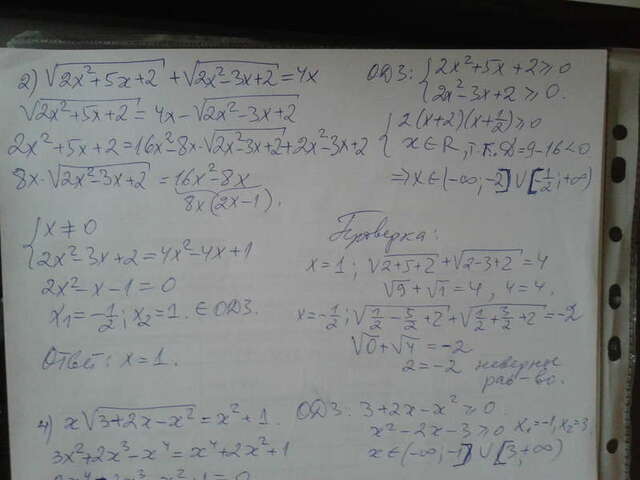 2) √(2x²+5x+2) + √(2x²-3x+2) = 4x
√(2x²+5x+2) = 4x - √(2x²-3x+2)
2x²+5x+2 = 16x²-8x·√(2x²-3x+2) + 2x²-3x+2
8x·√(2x²-3x+2) = 16x²-8x
8x(2x-1).
{ x ≠ 0
2x²-3x+2 = 4x²-4x+1
2x²-x-1=0
x₁=-1/2; x₂=1. ∈ ОДЗ.
Ответ: x=1.
ОДЗ: { 2x²+5x+2 ≥ 0
2x²-3x+2 ≥ 0.
{ 2(x+2)(x+1/2) ≥ 0
x ∈ R, т.к. D=9-16<0
=> x ∈ (-∞; -2] ∪ [-1/2; +∞)
Проверка:
x=1; √(2+5+2) + √(2-3+2) = 4
√9 + √1 = 4, 4=4.
x=-1/2; √(1/2-5/2+2) + √(1/2+3/2+2) = -2
√0 + √4 = -2
2=-2 неверное
рав-во.
4) x√(3+2x-x²) = x²+1.
3x²+2x³-x⁴ = x⁴+2x²+1
ОДЗ: 3+2x-x² ≥ 0.
x²-2x-3 ≥ 0 x₁=-1, x₂=3
x ∈ (-∞; -1] ∪ [3; +∞)